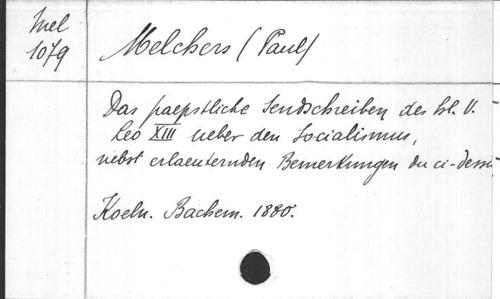 Mel
1079
Melchers (Paul)
Das paepstliche Sendschreiben des hl. V.
Leo XIII ueber den Socialismus,
nebst erlaeuternden Bemerkungen du ci-dessu
Koeln. Bachem. 1880.